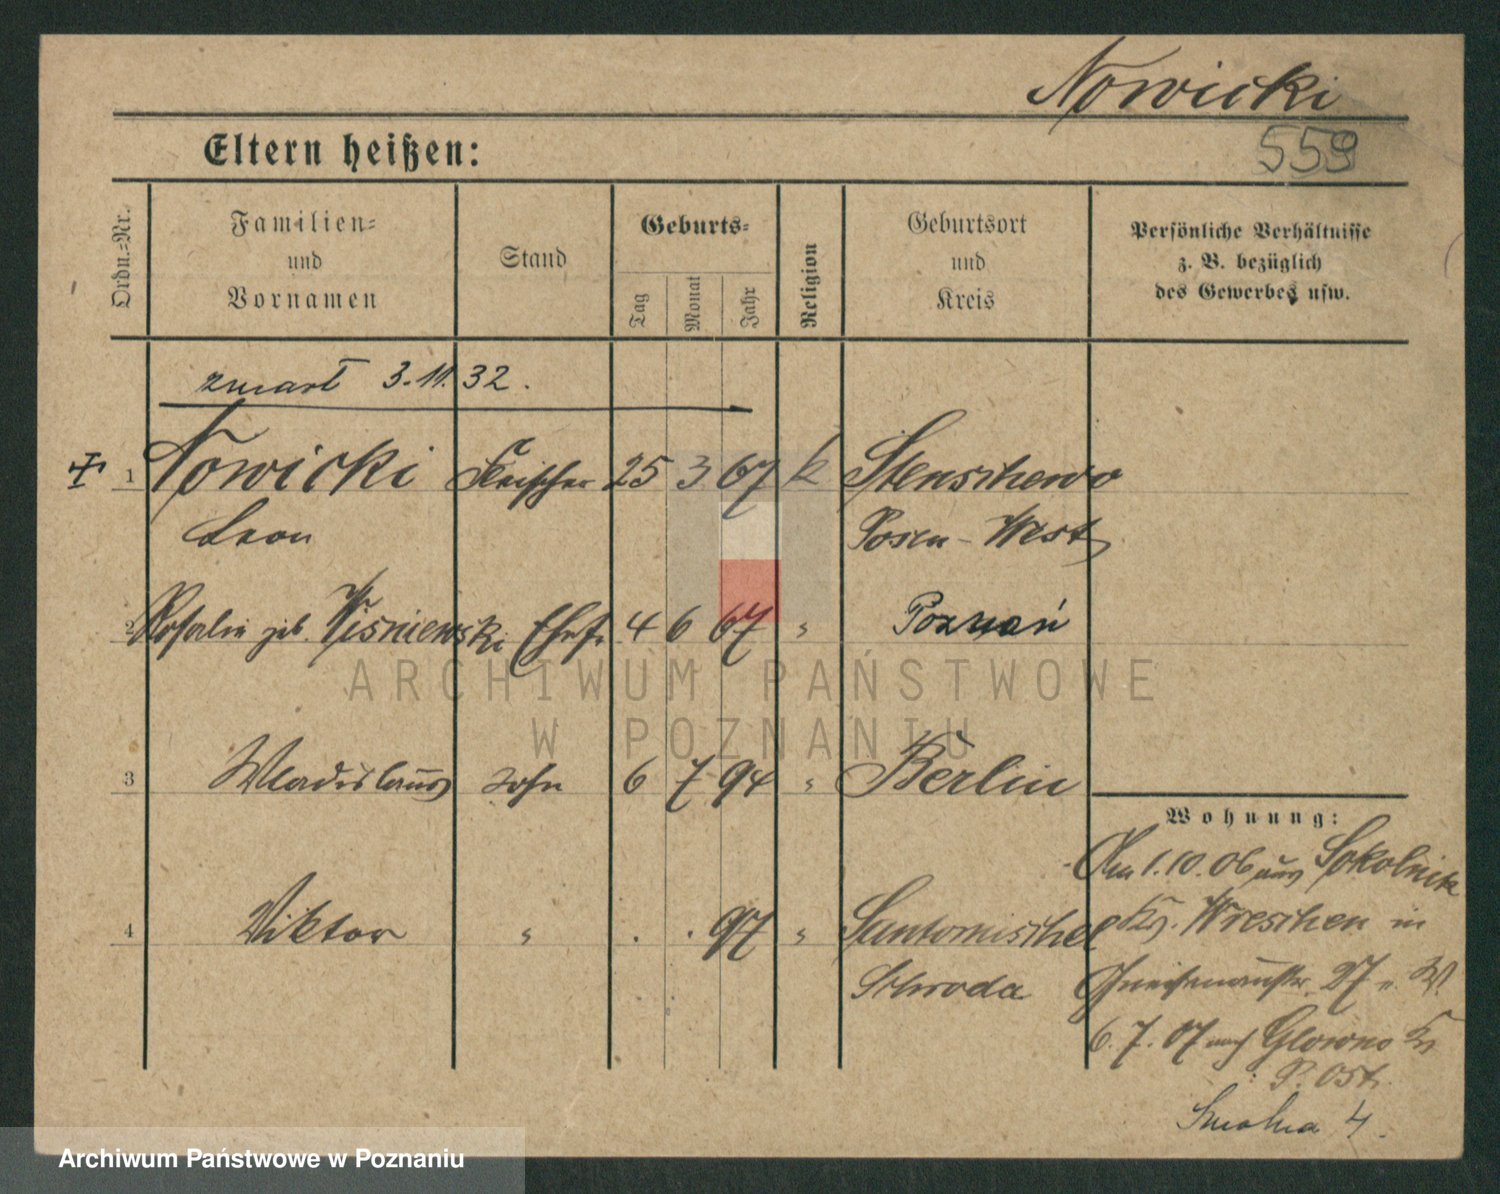 Nowicki
559
Eltern heißen:
Ordn.-Nr.
Familien-
und
Vornamen
Stand
Geburts-
Tag
Monat
Jahr
Religion
Geburtsort
und
Kreis
Persönliche Verhältnisse
z. B. bezüglich
des Gewerbes usw.
zmarł 3.11.32.
1 Nowicki Fleischer 25 3 67 k Stenschewo
Leon Posen-West
2 Rosalie geb. Wisniewski Ehefr. 4 6 67 " Poznań
3 Wladislaus Sohn 6 7 94 " Berlin
Wohnung:
Am 1.10.06 aus Sokolnik
4 Viktor " . . 97 " Santomischel
Kr. Wreschen in
Schroda
Gneisenaustr. 27 W.
6.7.07 nach Glowno Kr.
P. Ost.
4.
ARCHIWUM PAŃSTWOWE
W POZNANIU
Archiwum Państwowe w Poznaniu